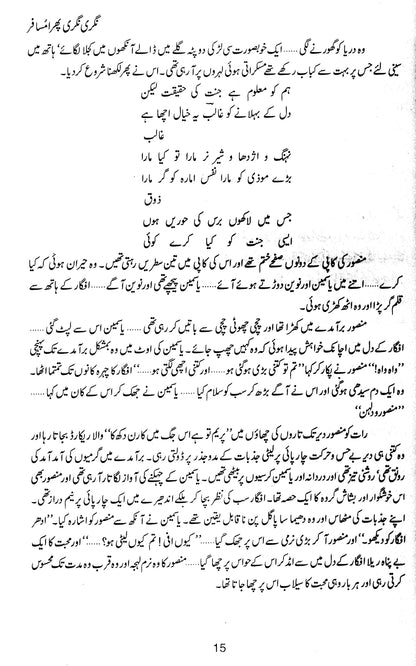 نگری نگری پھرا مسافر
وہ دریا کو گھورنے لگی ...... ایک خوبصورت سی لڑکی دوپٹہ گلے میں ڈالے آنکھوں میں کجلا لگائے ہاتھ میں
سینی لئے جس پر بہت سے کباب رکھے تھے مسکراتی ہوئی لہروں پر آ رہی تھی۔ اس نے پھر لکھنا شروع کر دیا۔
ہم کو معلوم ہے جنت کی حقیقت لیکن
دل کے بہلانے کو غالب یہ خیال اچھا ہے
غالب
نہنگ و اژدھا و شیر نر مارا تو کیا مارا
بڑے موذی کو مارا نفس امارہ کو گر مارا
ذوق
جس میں لاکھوں برس کی حوریں ہوں
ایسی جنت کو کیا کرے کوئی
منصور کی کاپی کے دونوں صفحے ختم تھے اور اس کی کاپی میں تین سطریں رہتی تھیں۔ وہ حیران ہوئی کہ کیا
کرے ...... اتنے میں یاسمین اور نوین دوڑتے ہوئے آئے ...... یاسمین پیچھے تھی اور نوین آگے ...... افگار کے ہاتھ سے
قلم گر پڑا اور وہ اٹھ کھڑی ہوئی۔
منصور برآمدے میں کھڑا تھا اور چچی چھوٹی چچی سے باتیں کر رہی تھی ...... یاسمین اس سے لپٹ گئی ......
افگار کے دل میں اچانک خواہش پیدا ہوئی کہ وہ کہیں چھپ جائے۔ یاسمین کی اوٹ میں وہ بمشکل برآمدے تک پہنچی
"واہ واہ" منصور نے پکار کر کہا "تم تو کتنی بڑی ہوگئی ہو ...... اور کتنی اچھی لگتی ہو ......" افگار کا چہرہ کانوں تک تمتما اٹھا۔
وہ ایک دم سیدھی ہوگئی اور اس نے آگے بڑھ کر سب کو سلام کیا ...... یاسمین نے جھک کر اس کے کان میں کہا ......
"منصور دولہن"
رات کو منصور دیر تک تاروں کی چھاؤں میں "پریم تو ہے اس جگ میں کارن دکھ کا" والا ریکارڈ بجاتا رہا اور
وہ کتنی ہی دیر بے حس و حرکت چارپائی پر لیٹی جذبات کے مدوجذر پر ڈولتی رہی۔ برآمدے میں گرمیوں کی آمد آمد کی
رونق تھی، روشنی تیز تھی اور دردانہ اور یاسمین کرسیوں پر بیٹھی تھیں۔ یاسمین کے چہکنے کی آواز لگاتار آ رہی تھی اور منصور بھی
اس خوشگوار اور بشاش گروہ کا ایک حصہ تھا۔ افگار سب کی نظر بچا کر ہلکے اندھیرے میں ایک چارپائی پر نیم دراز تھی۔
اپنے جذبات کی مٹھاس اور وہ دھیما سا پاگل پن ناقابل یقین تھے۔ یاسمین نے آنکھ سے منصور کو اشارہ کیا۔ "ادھر
افگار کو دیکھو" اور منصور آ کر بڑی نرمی سے اس پر جھک گیا ...... "کیوں افی! تم کیوں لیٹی ہو؟ ......" اور محبت کا ایک
بے پناہ ریلا افگار کے دل میں سے امڈ کر اس کے حواس پر چھا گیا ...... منصور کا وہ نرم لہجہ اور وہ قرب وہ مدت تک محسوس
کرتی رہی اور ہر بار وہی محبت کا سیلاب اس پر چھا جاتا تھا۔
15